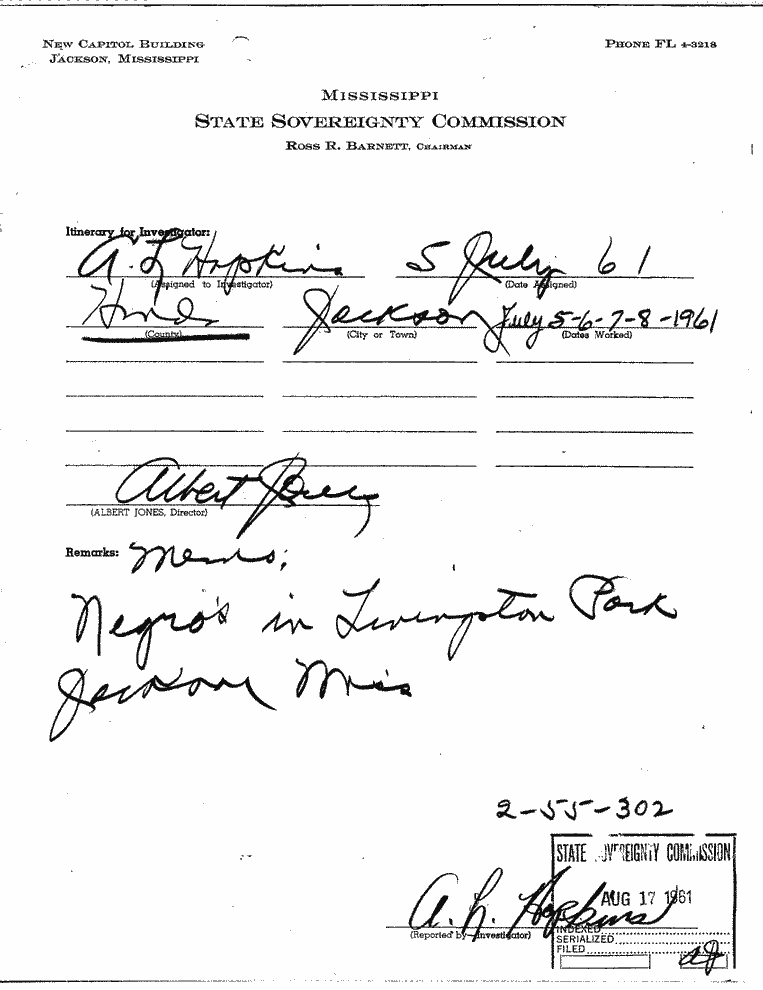 NEW CAPITOL BUILDING
JACKSON, MISSISSIPPI
PHONE FL 4-3218
MISSISSIPPI
STATE SOVEREIGNTY COMMISSION
ROSS R. BARNETT, CHAIRMAN
Itinerary for Investigator:
A. L Hopkins 5 July 61
(Assigned to Investigator) (Date Assigned)
Hinds Jackson July 5-6-7-8-1961
(County) (City or Town) (Dates Worked)
Albert Jones
(ALBERT JONES, Director)
Remarks: Memo;
Negro's in Livingston Park
Jackson Miss
2-55-302
STATE SOVEREIGNTY COMMISSION
AUG 17 1961
A. L. Hopkins
(Reported by—Investigator)
INDEXED
SERIALIZED
FILED